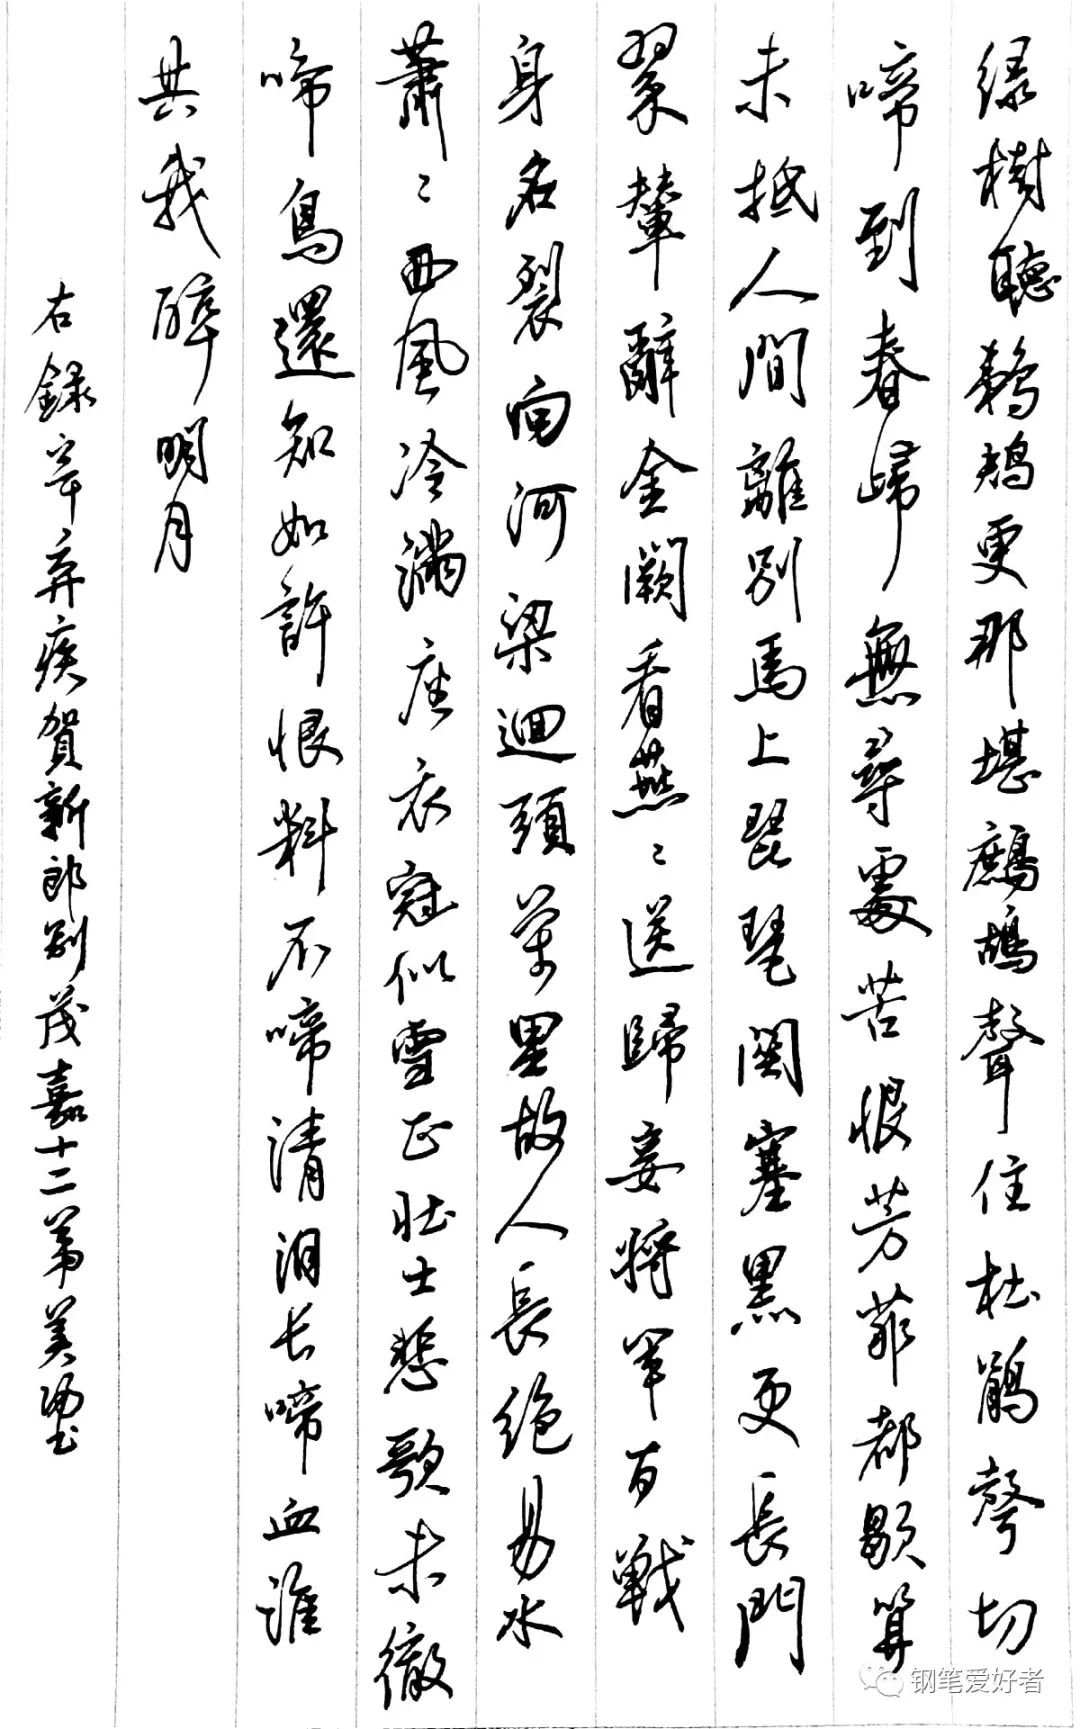 绿樹聽鵜鴂更那堪鷓鴣聲住杜鹃聲切
啼到春歸無尋處苦恨芳菲都歇算
未抵人間離别馬上琵琶関塞黑更長門
翠輦辭金闕看燕〻送歸妾将军百戰
身名裂向河梁迴頭萬里故人長绝易水
蕭〻西風冷满座衣冠似雪正壮士悲歌未徹
啼鳥還知如許恨料不啼清泪长啼血誰
共我醉明月
右録辛弃疾賀新郎别茂嘉十二弟
钢笔爱好者